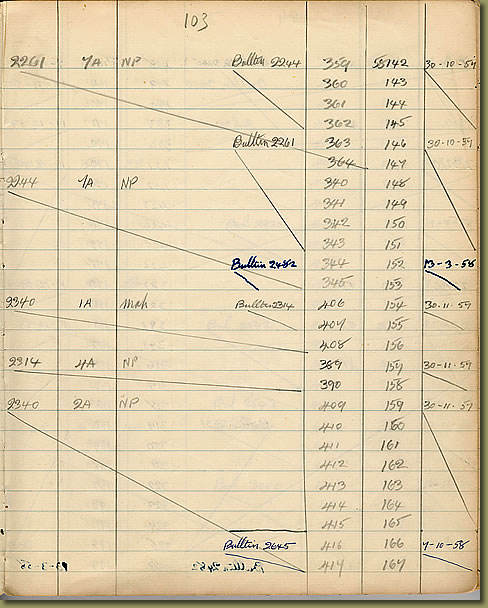 103
2261 7A NP Bulltin 2244 359 55142 30-10-57
360 143
361 144
362 145
Bulltin 2261 363 146 30-10-57
364 147
2244 1A NP 340 148
341 149
342 150
343 151
Bulltin 2482 344 152 13-3-58
345 153
2340 1A Mah Bulltin 2314 406 154 30-11-57
407 155
408 156
2314 4A NP 389 157 30-11-57
390 158
2340 2A NP 409 159 30-11-57
410 160
411 161
412 162
413 163
414 164
415 165
Bulltin 2645 416 166 7-10-58
417 167